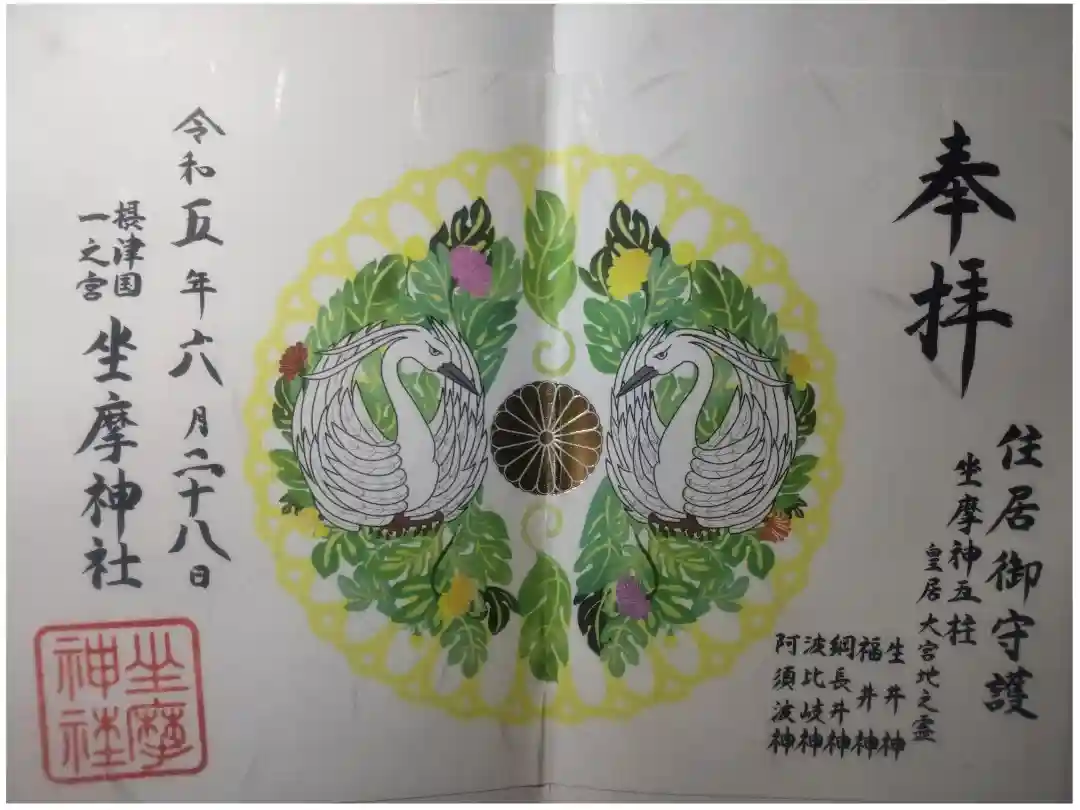 奉拝
住居御守護
坐摩神五柱
皇居大宮地之霊
生井神
福井神
綱長井神
波比岐神
阿須波神
令和五年六月二十八日
摂津国
一之宮
坐摩神社
坐摩
神社